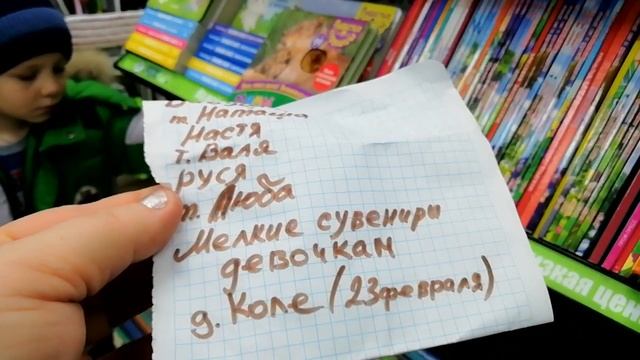 т. Наташа
Настя
т. Валя
руся
т. Люба
Мелкие сувенири
девочкам
д. Коле (23 февраля)
зкая цен